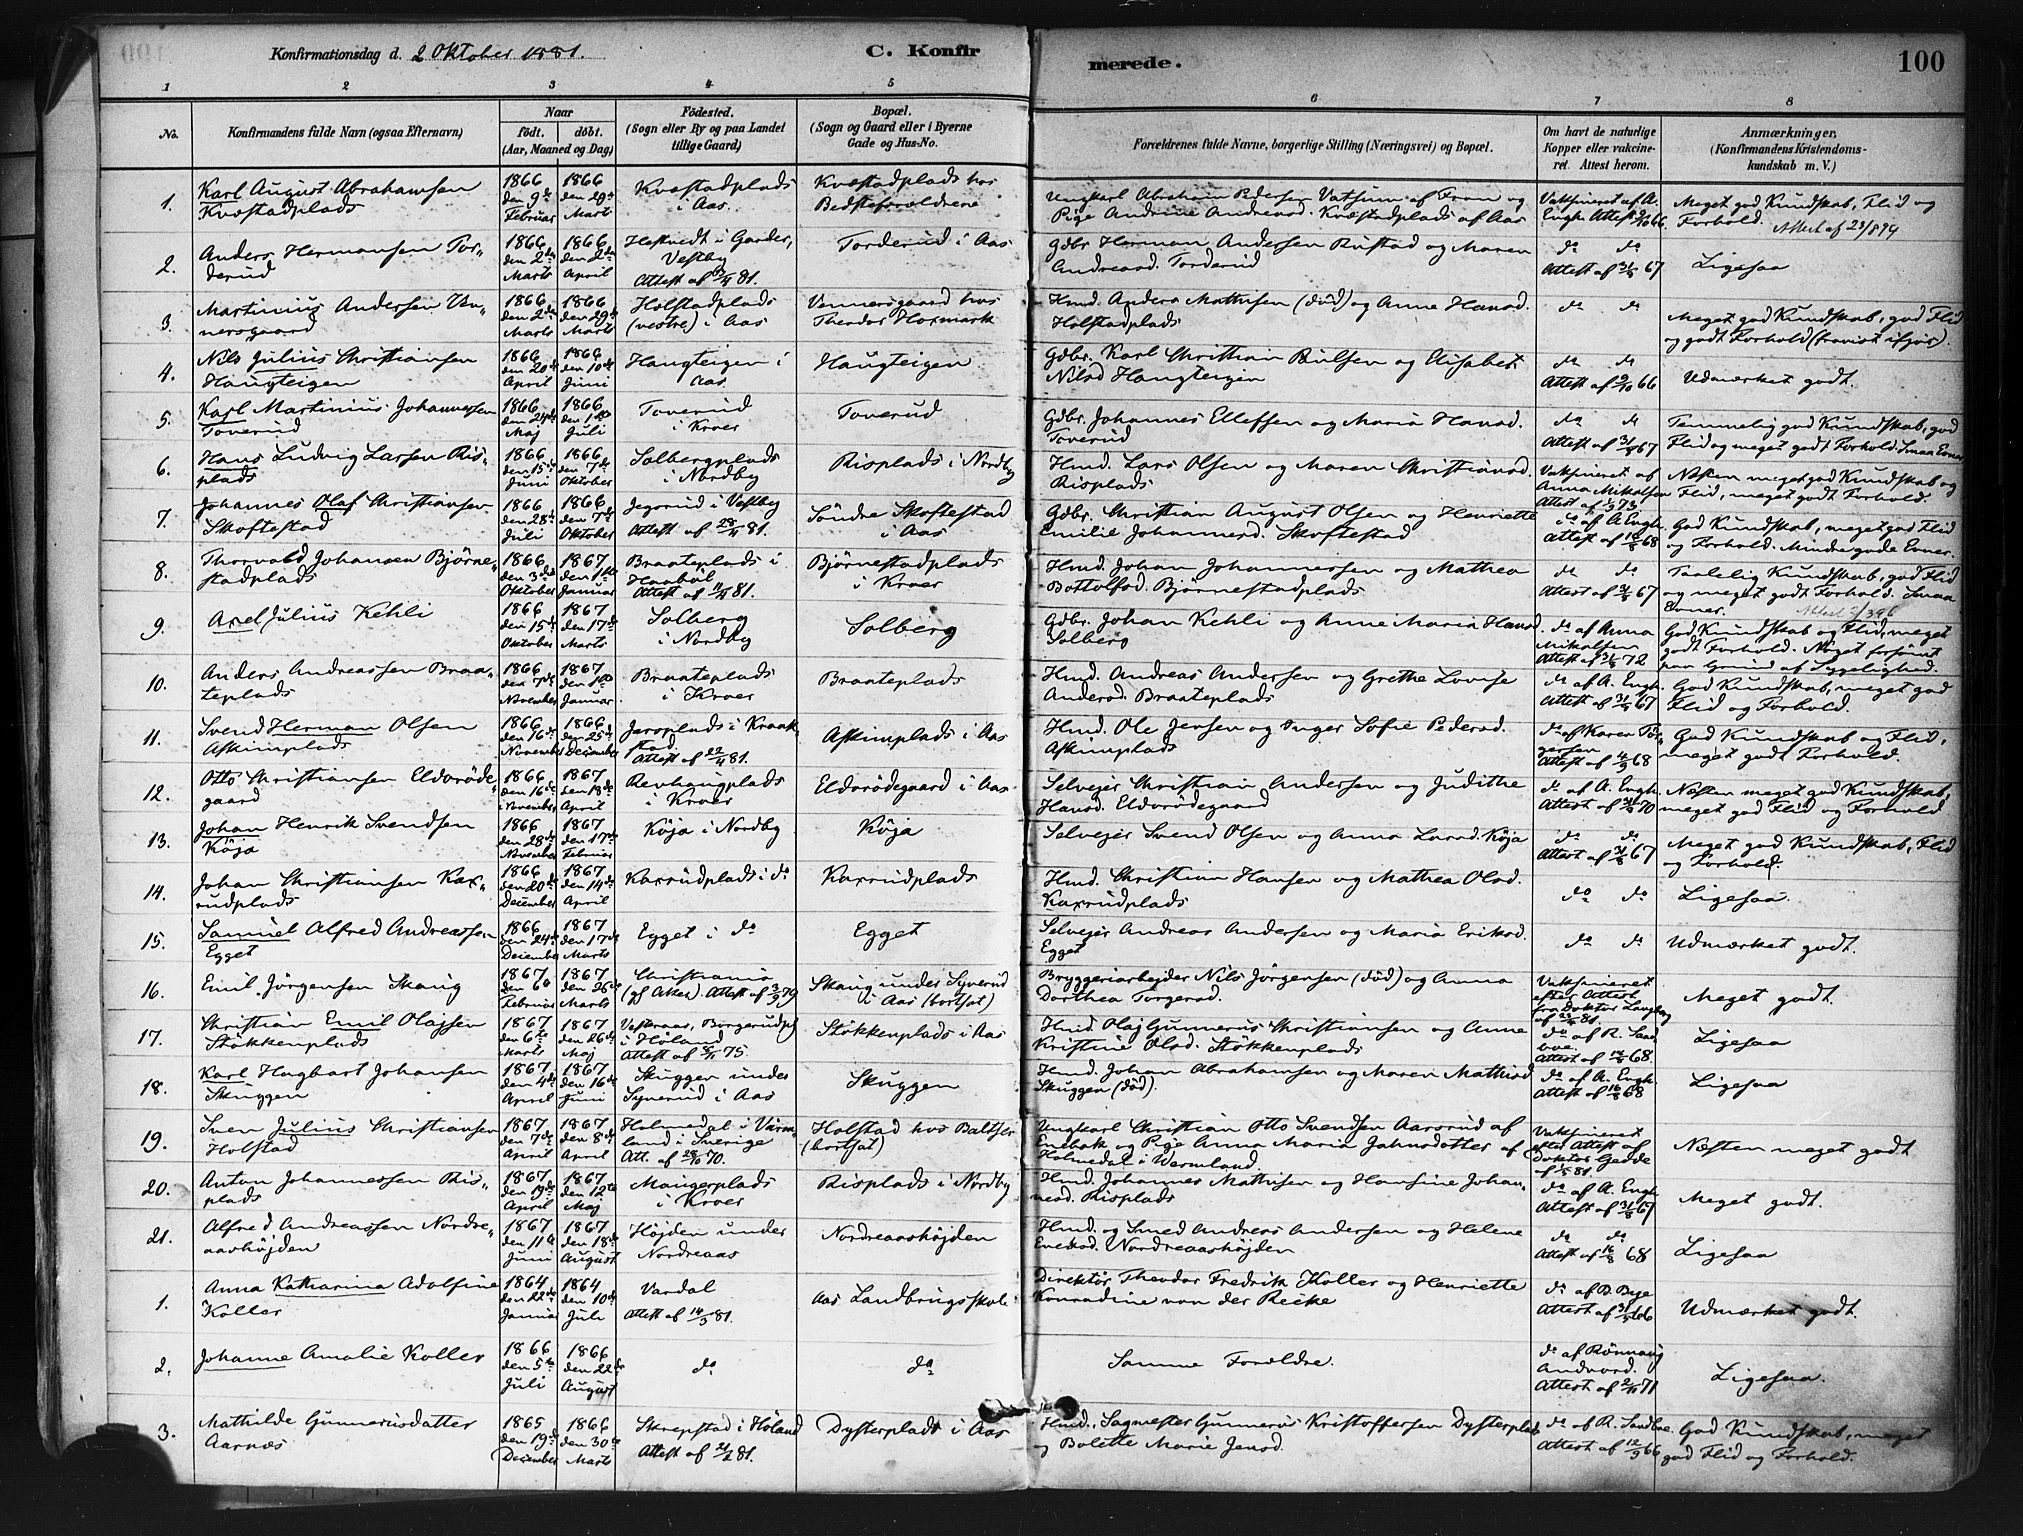 Konfirmationsdag d. 2 Oktober 1881.
C. Konfirmerede.
100
1 2 3 4 5 6 7 8
No.
Konfirmandens fulde Navn (ogsaa Efternavn)
Naar
födt. döbt.
(Aar, Maaned og Dag)
Födested.
(Sogn eller By og paa Landet
tillige Gaard)
Bopæl.
(Sogn og Gaard eller i Byerne
Gade og Hus-No.
Forældrenes fulde Navne, borgerlige Stilling (Næringsvei) og Bopæl.
Om havt de naturlige
Kopper eller vakcine-
ret. Attest herom.
Anmærkninger,
(Konfirmandens Kristendoms-
kundskab m. V.)
1. Karl August Abrahamsen Kvæstadplads
1866 den 9de Februar
1866 den 29de Marts
Kvæstadplads i Aas
Kvæstadplads hos Bedsteforældrene
Ungkarl Abraham Pedersen Vatsum af Fron og Pige Andrine Andreasd. Kvæstadplads af Aas
Vaksineret af A. Engh. Attest 66
Meget god Kundskab, Flid og Forhold. Attest af 23/8 94
2. Anders Hermansen Torderud
1866 den 2den Marts
1866 den 2den April
Heftvedt i Garder, Vestby Attest af 81.
Torderud i Aas
Gdbr Herman Andersen Rustad og Maren Andreasd. Torderud
do do Attest af 31/5 67
Ligesaa
3. Martinius Andersen Vennersgaard
1866 den 2den Marts
1866 den 29de Marts
Holstadplads (vestre) i Aas
Vennersgaard hos Theodor Hormark
Hmd. Anders Mathisen (död) og Anne Hansd. Holstadplads
do do
Meget god Kundskab, god Flid og godt Forhold (fravist ifjor).
4. Nils Julius Christiansen Haugteigen
1866 den 20de April
1866 den 10de Juni
Haugteigen i Aas
Haugteigen
Gdbr. Karl Christian Nilsen og Elisabet Nilsd Haugteigen
do do Attest af 9/10 66
Udmærket godt.
5. Karl Martinius Johannessen Toverud
1866 den 24de Maj
1866 den 1ste Juli
Toverud i Kroer
Toverud
Gdbr. Johannes Elleffsen og Maria Hansd. Toverud
do do Attest af 31/5 67
Temmelig god Kundskab, god Flid og meget godt Forhold. Smaa Evner
6. Hans Ludvig Larsen Risplads
1866 den 15de Juni
1866 den 7de Oktober
Solbergplads i Nordby
Risplads i Nordby
Hmd. Lars Olsen og Maren Christiansd. Risplads
Vaksineret af Anna Mikalsen Attest af 73
Næsten meget god Kundskab og Flid, meget godt Forhold.
7. Johannes Olaf Christiansen Skoftestad
1866 den 28de Juli
1866 den 7de Oktober
Jegerud i Vestby Attest af 28/4 81.
Söndre Skoftestad i Aas
Gdbr. Christian August Olsen og Henriette Emilie Johannesd. Skoftestad
do af A. Engh. Attest af 16/8 68
God Kundskab, meget god Flid og Forhold. Mindre gode Evner.
8. Thorvald Johansen Bjørnestadplads
1866 den 3die Oktober
1867 den 1ste Januar
Braateplads i Haaböl Attest af 11/4 81.
Bjørnestadplads i Kroer
Hmd. Johan Johannessen og Mathea Bottolfsd. Bjørnestadplads
do do Attest af 31/5 67
Taalelig Kundskab, god Flid og meget godt Forhold. Smaa Evner.
9. Axel Julius Kehli
1866 den 15de Oktober
1867 den 17de Marts
Solberg i Nordby
Solberg
Gdbr. Johan Kehli og Anne Maria Hansd Solberg
do af Anna Mikalsen Attest af 31/5 72
God Kundskab og Flid, meget godt Forhold. Noget forsömt paa Grund af Sygelighed.
10. Anders Andreassen Braateplads
1866 den 7de November
1867 den 1ste Januar
Braateplads i Kroer
Braateplads
Hmd. Andreas Andersen og Grethe Lovise Andersd. Braateplads
do af A. Engh. Attest af 31/5 67
God Kundskab, meget god Flid og Forhold.
11. Svend Herman Olsen Askimplads
1866 den 16de November
1866 den 25de December
Jersplads i Kraakstad. Attest af 22/4 81.
Askimplads i Aas
Hmd. Ole Jensen og Inger Sofie Pedersd. Askimplads
do af Karen Torgersen Attest af 68
God Kundskab og Flid, meget godt Forhold.
12. Otto Christiansen Eldorödegaard
1866 den 16de November
1867 den 18de April
Revhaugplads i Kroer
Eldorödegaard i Aas
Selvejer Christian Andersen og Judithe Hansd. Eldorödegaard
do af A. Engh. Attest af 70
Næsten meget god Kundskab, meget god Flid og Forhold
13. Johan Henrik Svendsen Köja
1866 den 28de November
1867 den 17de Februar
Köja i Nordby
Köja
Selvejer Svend Olsen og Anna Larsd. Köja
do do Attest af 31/5 67
Meget god Kundskab, Flid og Forhold.
14. Johan Christiansen Kaxrudplads
1866 den 20de December
1867 den 14de April
Kaxrudplads i do
Kaxrudplads
Hmd. Christian Hansen og Mathea Olsd. Kaxrudplads
do do
Ligesaa.
15. Samuel Alfred Andreassen Egget
1866 den 24de December
1867 den 17de Marts
Egget i do
Egget
Selvejer Andreas Andersen og Maria Eriksd. Egget
do do
Udmærket godt.
16. Emil Jörgensen Skaug
1867 den 6te Februar
1867 den 26de Marts
Christiania (gl Aker). Attest af 79
Skaug under Syverud i Aas (bortsat)
Bryggeriarbejder Nils Jörgensen (död) og Anna Dorthea Torgersd.
Vaksineret efter Attest fra Doktor Langberg af 81.
Meget godt.
17. Christian Emil Olajsen Stökkenplads
1867 den 6te Marts
1867 den 26de Maj
Vesteraas, Borgerudpl i Höland Attest af 75.
Stökkenplads i Aas
Hmd. Olaj Gunnerus Christiansen og Anne Kristine Olsd. Stökkenplads
do af R. Attest af 68.
Ligesaa
18. Karl Hagbart Johansen Skuggen
1867 den 4de April
1867 den 16de Juni
Skuggen under Syverud i Aas
Skuggen
Hmd. Johan Abrahamsen og Maren Mathisd Skuggen (död).
do af A. Engh. Attest af 16/8 68
Ligesaa
19. Sven Julius Christiansen Holstad
1867 den 7de April
1867 den 8de April
Holmedal i Värmland i Sverige Att. af 28/10 70.
Holstad hos Baltser (bortsat)
Ungkarl Christian Otto Svendsen Aarsrud af Enebak og Pige Anna Maria Jahnsdotter af Holmedal i Wermland.
Vaksineret efter Attest af Doktor Gedde af 1/5 81.
Næsten meget godt
20. Anton Johannessen Risplads
1867 den 19de April
1867 den 12te Maj
Maugerplads i Kroer
Risplads i Nordby
Hmd. Johannes Mathisen og Hansine Johannesd. Risplads
do af A. Engh. Attest af 31/5 67
Meget godt.
21. Alfred Andreassen Nordreaashöjden
1867 den 11te Juni
1867 den 18de August
Höjden under Nordreaas
Nordreaashöjden
Hmd. og Smed Andreas Andersen og Helene Eneksd. Nordreaashöjden
do do Attest af 16/8 68
Ligesaa
1. Anna Katharina Adolfine Koller
1864 den 22de Januar
1864 den 10de Juli
Vardal Attest af 14/3 81.
Aas Landbrugsskole
Direktör Theodor Fredrik Koller og Henriette Konradine von der Recke
do af B. Bye Attest af 66
Udmærket godt.
2. Johanne Amalie Koller
1866 den 5te Juli
1866 den 22de August
do
do
Samme Forældre.
do af Rönnaug Andvord. Attest af 71
Ligesaa.
3. Mathilde Gunnerusdatter Aarnæs
1865 den 19de December
1866 den 30te Marts
Skrepstad i Höland Attest af 81.
Dysterplads i Aas
Hmd., Sagmester Gunnerus Kristoffersen Dysterplads og Bolette Marie Jensd.
do af R. Attest af 12/9 66
God Kundskab, meget god Flid og Forhold.